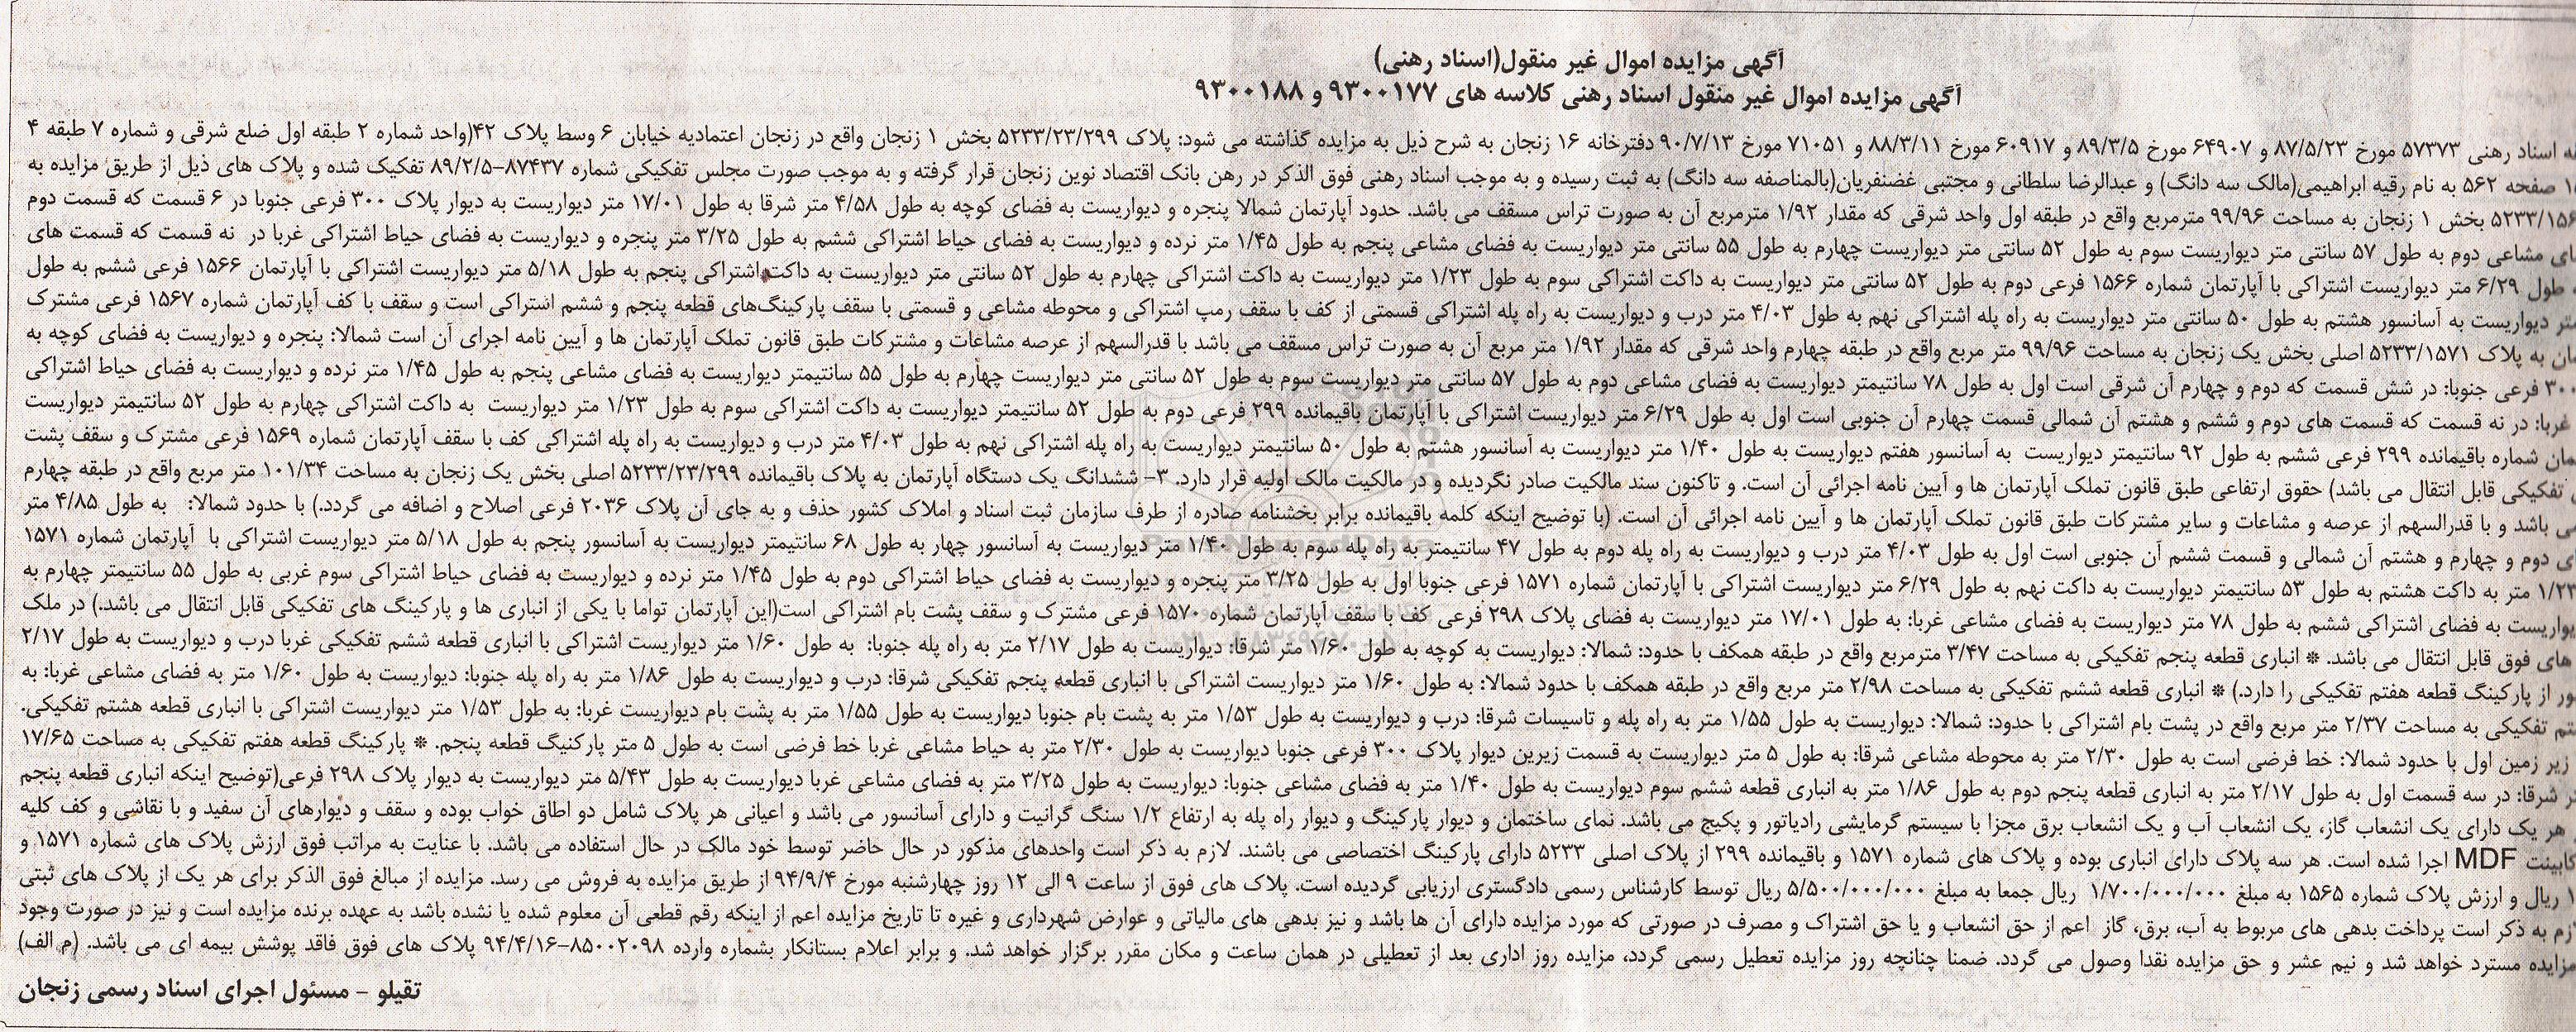 آگهی مزایده اموال غیر منقول(اسناد رهنی)
آگهی مزایده اموال غیر منقول اسناد رهنی کلاسه های ۹۳۰۰۱۷۷ و ۹۳۰۰۱۸۸
اسناد رهنی ۵۷۳۷۳ مورخ ۸۷/۵/۲۳ و ۶۴۹۰۷ مورخ ۸۹/۳/۵ و ۶۰۹۱۷ مورخ ۸۸/۳/۱۱ و ۷۱۰۵۱ مورخ ۹۰/۷/۱۳ دفترخانه ۱۶ زنجان به شرح ذیل به مزایده گذاشته می شود: پلاک ۵۲۳۳/۲۳/۲۹۹ بخش ۱ زنجان واقع در زنجان اعتمادیه خیابان ۶ وسط پلاک ۴۲(واحد شماره ۲ طبقه اول ضلع شرقی و شماره ۷ طبقه ۴
صفحه ۵۶۲ به نام رقیه ابراهیمی(مالک سه دانگ) و عبدالرضا سلطانی و مجتبی غضنفریان(بالمناصفه سه دانگ) به ثبت رسیده و به موجب اسناد رهنی فوق الذکر در رهن بانک اقتصاد نوین زنجان قرار گرفته و به موجب صورت مجلس تفکیکی شماره ۸۷۴۳۷-۸۹/۲/۵ تفکیک شده و پلاک های ذیل از طریق مزایده به
بخش ۱ زنجان به مساحت ۹۹/۹۶ مترمربع واقع در طبقه اول واحد شرقی که مقدار ۱/۹۲ مترمربع آن به صورت تراس مسقف می باشد. حدود آپارتمان شمالا پنجره و دیواریست به فضای کوچه به طول ۴/۵۸ متر شرقا به طول ۱۷/۰۱ متر دیواریست به دیوار پلاک ۳۰۰ فرعی جنوبا در ۶ قسمت که قسمت دوم
مشاعی دوم به طول ۵۷ سانتی متر دیواریست سوم به طول ۵۲ سانتی متر دیواریست چهارم به طول ۵۵ سانتی متر دیواریست به فضای مشاعی پنجم به طول ۱/۴۵ متر نرده و دیواریست به فضای حیاط اشتراکی ششم به طول ۳/۲۵ متر پنجره و دیواریست به فضای حیاط اشتراکی غربا در نه قسمت که قسمت های
طول ۶/۲۹ متر دیواریست اشتراکی با آپارتمان شماره ۱۵۶۶ فرعی دوم به طول ۵۲ سانتی متر دیواریست به داکت اشتراکی سوم به طول ۱/۲۳ متر دیواریست به داکت اشتراکی چهارم به طول ۵۲ سانتی متر دیواریست به داکت اشتراکی پنجم به طول ۵/۱۸ متر دیواریست اشتراکی با آپارتمان ۱۵۶۶ فرعی ششم به طول
دیواریست به آسانسور هشتم به طول ۵۰ سانتی متر دیواریست به راه پله اشتراکی نهم به طول ۴/۰۳ متر درب و دیواریست به راه پله اشتراکی قسمتی از کف با سقف رمپ اشتراکی و محوطه مشاعی و قسمتی با سقف پارکینگ‌های قطعه پنجم و ششم اشتراکی است و سقف با کف آپارتمان شماره ۱۵۶۷ فرعی مشترک
به پلاک ۵۲۳۳/۱۵۷۱ اصلی بخش یک زنجان به مساحت ۹۹/۹۶ متر مربع واقع در طبقه چهارم واحد شرقی که مقدار ۱/۹۲ متر مربع آن به صورت تراس مسقف می باشد با قدرالسهم از عرصه مشاعات و مشترکات طبق قانون تملک آپارتمان ها و آیین نامه اجرای آن است شمالا: پنجره و دیواریست به فضای کوچه به
۳۰۰ فرعی جنوبا: در شش قسمت که دوم و چهارم آن شرقی است اول به طول ۷۸ سانتیمتر دیواریست به فضای مشاعی دوم به طول ۵۷ سانتی متر دیواریست سوم به طول ۵۲ سانتی متر دیواریست چهارم به طول ۵۵ سانتیمتر دیواریست به فضای مشاعی پنجم به طول ۱/۴۵ متر نرده و دیواریست به فضای حیاط اشتراکی
غربا: در نه قسمت که قسمت های دوم و ششم و هشتم آن شمالی قسمت چهارم آن جنوبی است اول به طول ۶/۲۹ متر دیواریست اشتراکی با آپارتمان باقیمانده ۲۹۹ فرعی دوم به طول ۵۲ سانتیمتر دیواریست به داکت اشتراکی سوم به طول ۱/۲۳ متر دیواریست به داکت اشتراکی چهارم به طول ۵۲ سانتیمتر دیواریست
شماره باقیمانده ۲۹۹ فرعی ششم به طول ۹۲ سانتیمتر دیواریست به آسانسور هفتم دیواریست به طول ۱/۴۰ متر دیواریست به آسانسور هشتم به طول ۵۰ سانتیمتر دیواریست به راه پله اشتراکی نهم به طول ۴/۰۳ متر درب و دیواریست به راه پله اشتراکی کف با سقف آپارتمان شماره ۱۵۶۹ فرعی مشترک و سقف پشت
تفکیکی قابل انتقال می باشد) حقوق ارتفاعی طبق قانون تملک آپارتمان ها و آیین نامه اجرائی آن است. و تاکنون سند مالکیت صادر نگردیده و در مالکیت مالک اولیه قرار دارد. ۳- ششدانگ یک دستگاه آپارتمان به پلاک باقیمانده ۵۲۳۳/۲۳/۲۹۹ اصلی بخش یک زنجان به مساحت ۱۰۱/۳۴ متر مربع واقع در طبقه چهارم
می باشد و با قدرالسهم از عرصه و مشاعات و سایر مشترکات طبق قانون تملک آپارتمان ها و آیین نامه اجرائی آن است. (با توضیح اینکه کلمه باقیمانده برابر بخشنامه صادره از طرف سازمان ثبت اسناد و املاک کشور حذف و به جای آن پلاک ۲۰۳۶ فرعی اصلاح و اضافه می گردد.) با حدود شمالا: به طول ۴/۸۵ متر
دوم و چهارم و هشتم آن شمالی و قسمت ششم آن جنوبی است اول به طول ۴/۰۳ متر درب و دیواریست به راه پله دوم به طول ۴۷ سانتیمتر به راه پله سوم به طول ۱/۴۰ متر دیواریست به آسانسور چهار به طول ۶۸ سانتیمتر دیواریست به آسانسور پنجم به طول ۵/۱۸ متر دیواریست اشتراکی با آپارتمان شماره ۱۵۷۱
۱/۲۳ متر به داکت هشتم به طول ۵۳ سانتیمتر دیواریست به داکت نهم به طول ۶/۲۹ متر دیواریست اشتراکی با آپارتمان شماره ۱۵۷۱ فرعی جنوبا اول به طول ۳/۲۵ متر پنجره و دیواریست به فضای حیاط اشتراکی دوم به طول ۱/۴۵ متر نرده و دیواریست به فضای حیاط اشتراکی سوم غربی به طول ۵۵ سانتیمتر چهارم به
دیواریست به فضای اشتراکی ششم به طول ۷۸ متر دیواریست به فضای مشاعی غربا: به طول ۱۷/۰۱ متر دیواریست به فضای پلاک ۲۹۸ فرعی کف با سقف آپارتمان شماره ۱۵۷۰ فرعی مشترک و سقف پشت بام اشتراکی است(این آپارتمان تواما با یکی از انباری ها و پارکینگ های تفکیکی قابل انتقال می باشد.) در ملک
های فوق قابل انتقال می باشد. * انباری قطعه پنجم تفکیکی به مساحت ۳/۴۷ مترمربع واقع در طبقه همکف با حدود: شمالا: دیواریست به کوچه به طول ۱/۶۰ متر شرقا: دیواریست به طول ۲/۱۷ متر به راه پله جنوبا: به طول ۱/۶۰ متر دیواریست اشتراکی با انباری قطعه ششم تفکیکی غربا درب و دیواریست به طول ۲/۱۷
از پارکینگ قطعه هفتم تفکیکی را دارد.) * انباری قطعه ششم تفکیکی به مساحت ۲/۹۸ متر مربع واقع در طبقه همکف با حدود شمالا: به طول ۱/۶۰ متر دیواریست اشتراکی با انباری قطعه پنجم تفکیکی شرقا: درب و دیواریست به طول ۱/۸۶ متر به راه پله جنوبا: دیواریست به طول ۱/۶۰ متر به فضای مشاعی غربا: به
تفکیکی به مساحت ۲/۳۷ متر مربع واقع در پشت بام اشتراکی با حدود: شمالا: دیواریست به طول ۱/۵۵ متر به راه پله و تاسیسات شرقا: درب و دیواریست به طول ۱/۵۳ متر به پشت بام جنوبا دیواریست به طول ۱/۵۵ متر به پشت بام دیواریست غربا: به طول ۱/۵۳ متر دیواریست اشتراکی با انباری قطعه هشتم تفکیکی.
زیر زمین اول با حدود شمالا: خط فرضی است به طول ۲/۳۰ متر به محوطه مشاعی شرقا: به طول ۵ متر دیواریست به قسمت زیرین دیوار پلاک ۳۰۰ فرعی جنوبا دیواریست به طول ۲/۳۰ متر به حیاط مشاعی غربا خط فرضی است به طول ۵ متر پارکنیگ قطعه پنجم. * پارکینگ قطعه هفتم تفکیکی به مساحت ۱۷/۶۵
شرقا: در سه قسمت اول به طول ۲/۱۷ متر به انباری قطعه پنجم دوم به طول ۱/۸۶ متر به انباری قطعه ششم سوم دیواریست به طول ۱/۴۰ متر به فضای مشاعی جنوبا: دیواریست به طول ۳/۲۵ متر به فضای مشاعی غربا دیواریست به طول ۵/۴۳ متر دیواریست به دیوار پلاک ۲۹۸ فرعی(توضیح اینکه انباری قطعه پنجم
هر یک دارای یک انشعاب گاز، یک انشعاب آب و یک انشعاب برق مجزا با سیستم گرمایشی رادیاتور و پکیج می باشد. نمای ساختمان و دیوار پارکینگ و دیوار راه پله به ارتفاع ۱/۲ سنگ گرانیت و دارای آسانسور می باشد و اعیانی هر پلاک شامل دو اطاق خواب بوده و سقف و دیوارهای آن سفید و با نقاشی و کف کلیه
کابینت MDF اجرا شده است. هر سه پلاک دارای انباری بوده و پلاک های شماره ۱۵۷۱ و باقیمانده ۲۹۹ از پلاک اصلی ۵۲۳۳ دارای پارکینگ اختصاصی می باشند. لازم به ذکر است واحدهای مذکور در حال حاضر توسط خود مالک در حال استفاده می باشد. با عنایت به مراتب فوق ارزش پلاک های شماره ۱۵۷۱ و
ریال و ارزش پلاک شماره ۱۵۶۵ به مبلغ ۱/۷۰۰/۰۰۰/۰۰۰ ریال جمعا به مبلغ ۵/۵۰۰/۰۰۰/۰۰۰ ریال توسط کارشناس رسمی دادگستری ارزیابی گردیده است. پلاک های فوق از ساعت ۹ الی ۱۲ روز چهارشنبه مورخ ۹۴/۹/۴ از طریق مزایده به فروش می رسد. مزایده از مبالغ فوق الذکر برای هر یک از پلاک های ثبتی
به ذکر است پرداخت بدهی های مربوط به آب، برق، گاز اعم از حق انشعاب و یا حق اشتراک و مصرف در صورتی که مورد مزایده دارای آن ها باشد و نیز بدهی های مالیاتی و عوارض شهرداری و غیره تا تاریخ مزایده اعم از اینکه رقم قطعی آن معلوم شده یا نشده باشد به عهده برنده مزایده است و نیز در صورت وجود
مزایده مسترد خواهد شد و نیم عشر و حق مزایده نقدا وصول می گردد. ضمنا چنانچه روز مزایده تعطیل رسمی گردد، مزایده روز اداری بعد از تعطیلی در همان ساعت و مکان مقرر برگزار خواهد شد. و برابر اعلام بستانکار بشماره وارده ۸۵۰۰۲۰۹۸-۹۴/۴/۱۶ پلاک های فوق فاقد پوشش بیمه ای می باشد. (م الف)
تقیلو - مسئول اجرای اسناد رسمی زنجان